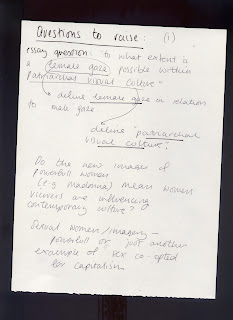 Questions to raise: (i)
essay question: "to what extent is
a female gaze possible within
patriarchal visual culture"
define female gaze in relation
to male gaze
define "patriarchal
visual culture"
Do the new images of
powerfull women
(e.g Madonna) mean women
viewers are influencing
contemporary culture?
Sexual women/imagery –
powerfull or just another
example of sex co-opted
for capitalism